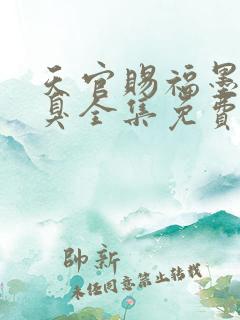 天官赐福墨
真全集免费
帥新
未经同意禁止转载